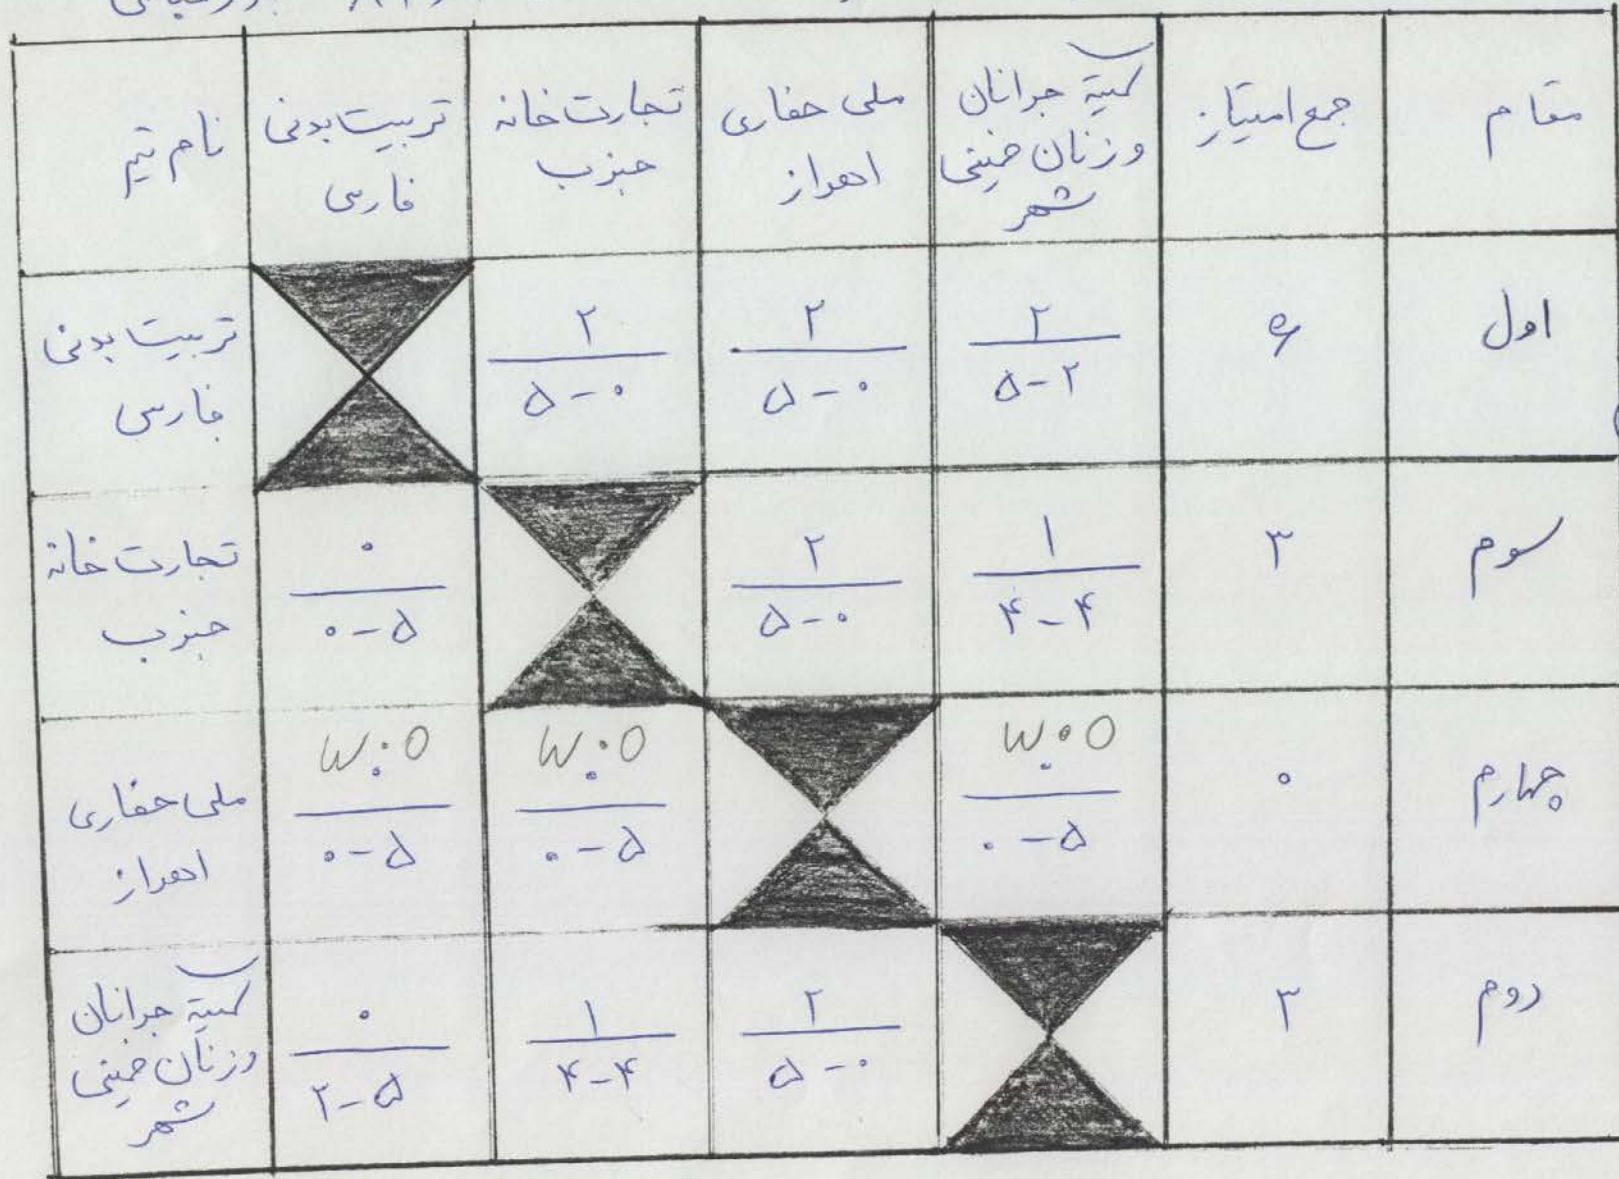 نام تیم
تربیت بدنی
فارس
تجارت خانه
جنوب
ملی حفاری
اهواز
کمیته جوانان
و زنان خمینی
شهر
جمع امتیاز
مقام
تربیت بدنی
فارس
۲
۵-۰
۲
۵-۰
۲
۵-۲
۶
اول
تجارت خانه
جنوب
۰
۰-۵
۲
۵-۰
۱
۴-۴
۳
سوم
ملی حفاری
اهواز
W.O
۰
۰-۵
W.O
۰
۰-۵
W.O
۰
۰-۵
۰
چهارم
کمیته جوانان
و زنان خمینی
شهر
۰
۲-۵
۱
۴-۴
۲
۵-۰
۳
دوم